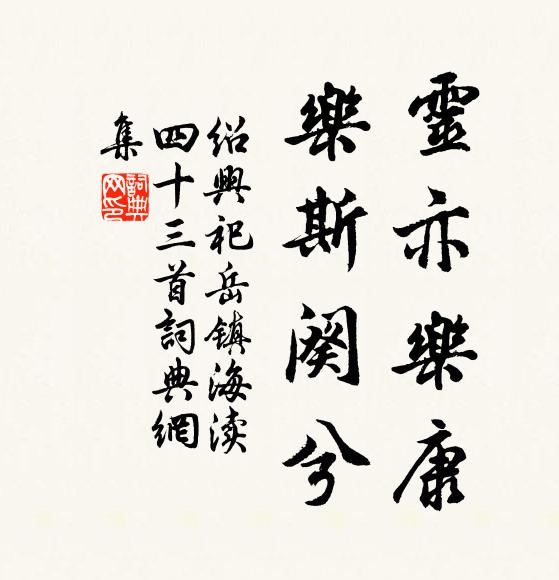 靈亦樂康
樂斯闋兮
紹興祀岳鎮海渎
四十三首詞典網
集
詞典
网印